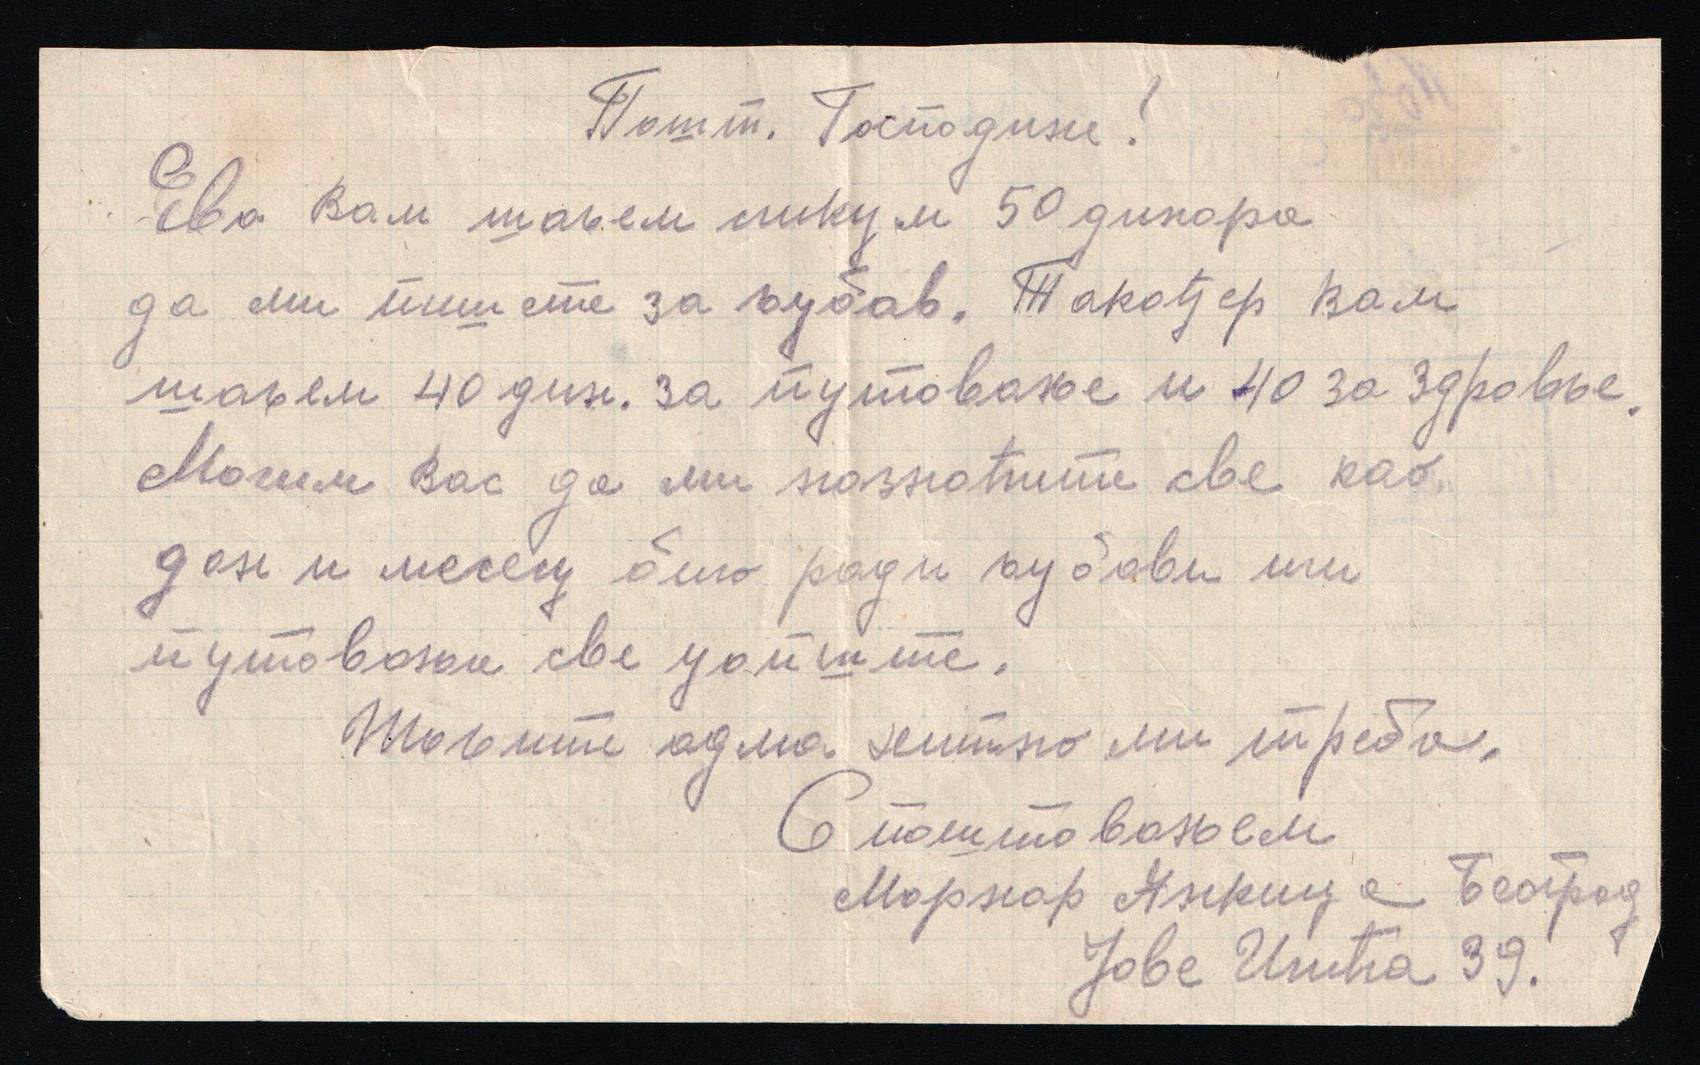 Пошт. Господине!
Ево вам шаљем
50 динара
да ми пишете за љубав. Такођер вам
шаљем 40 дин. за путовање и 40 за здравље.
Молим вас да ми назначите све као
дан и месец било ради љубави или
путовања све уопште.
Шаљите одма хитно ми треба.
С поштовањем
Морнар Анкица Београд
Јове Илића 39.